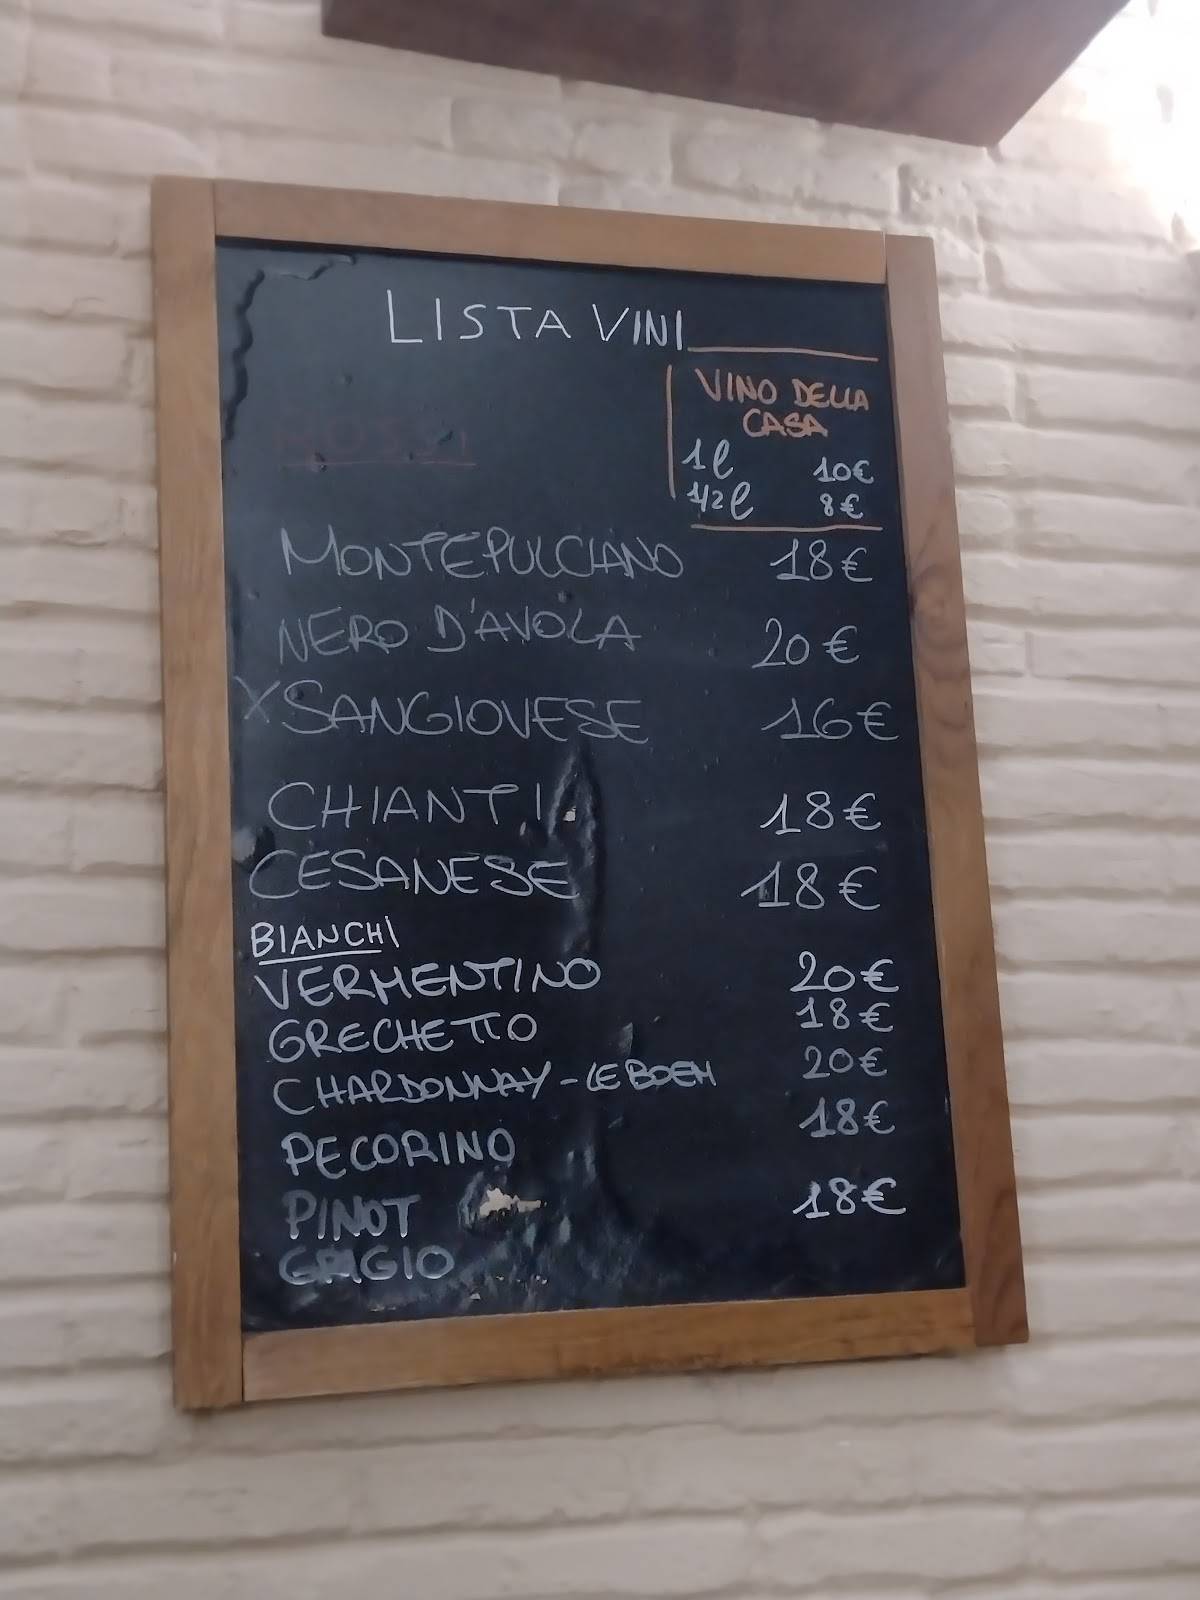 LISTA VINI
VINO DELLA
CASA
1l 10€
1/2l 8€
ROSSI
MONTEPULCIANO 18€
NERO D'AVOLA 20€
X SANGIOVESE 16€
CHIANTI 18€
CESANESE 18€
BIANCHI
VERMENTINO 20€
GRECHETTO 18€
CHARDONNAY - LE BOEM 20€
PECORINO 18€
PINOT 18€
GRIGIO